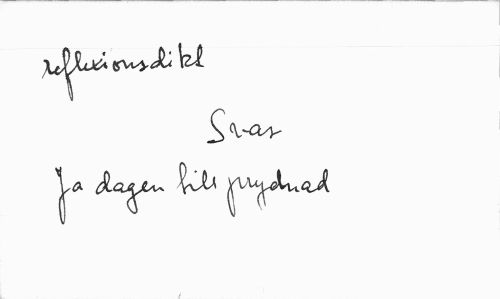 reflexionsdikt
Svar
Ja dagen till prydnad